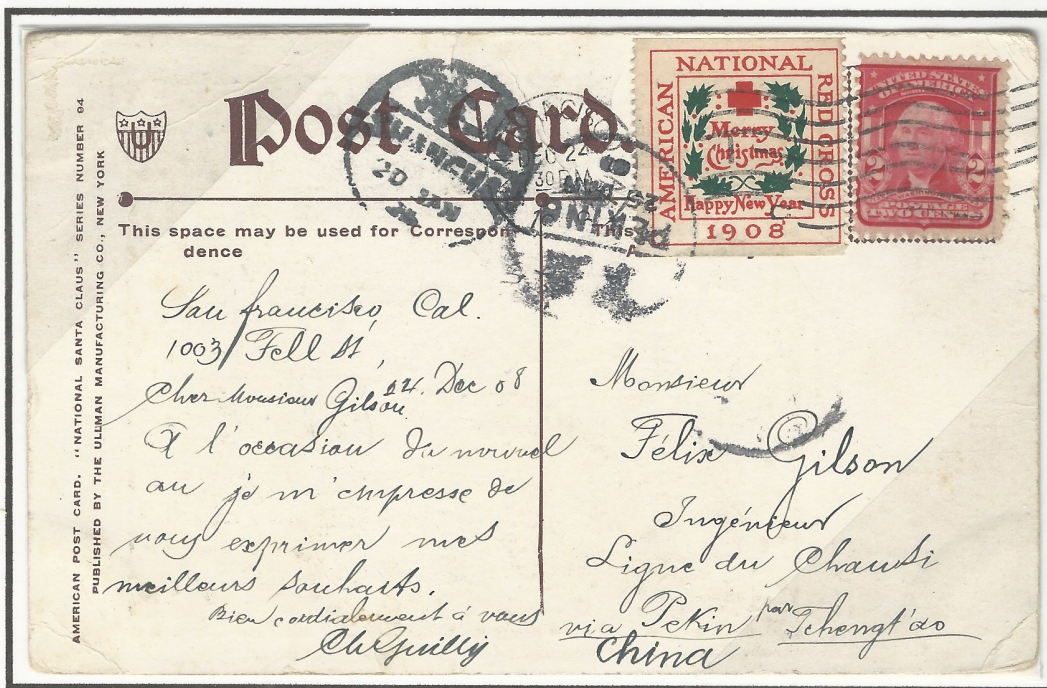 Post Card.
AMERICAN POST CARD. "NATIONAL SANTA CLAUS" SERIES NUMBER 94
PUBLISHED BY THE ULLMAN MANUFACTURING CO., NEW YORK
This space may be used for Correspon-
dence
This
DEC 24
30 PM
PEKING
AMERICAN
NATIONAL
RED CROSS
Merry
Christmas
Happy New Year
1908
UNITED STATES
OF AMERICA
2 2
POSTAGE
TWO CENTS
San francisco, Cal.
1003 Fell St,
24. Dec 08
Cher Monsieur Gilson
A l'occasion du nouvel
an je m'empresse de
vous exprimer mes
meilleurs souhaits.
Bien cordialement à vous
Ch Guilly
Monsieur
Félix Gilson
Ingénieur
Ligne du Chansi
via Pekin par Tchengt'ao
China